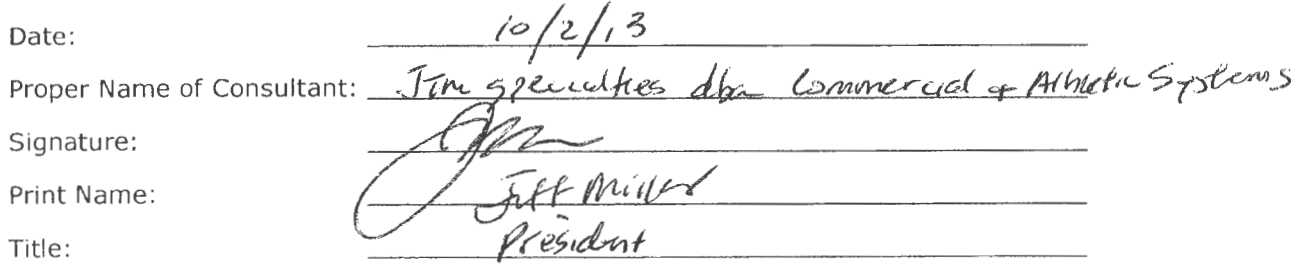 Date: 10/2/13
Proper Name of Consultant: Jim Specialties dba Commercial & Athletic Systems
Signature:
Print Name: Jeff Miller
Title: President